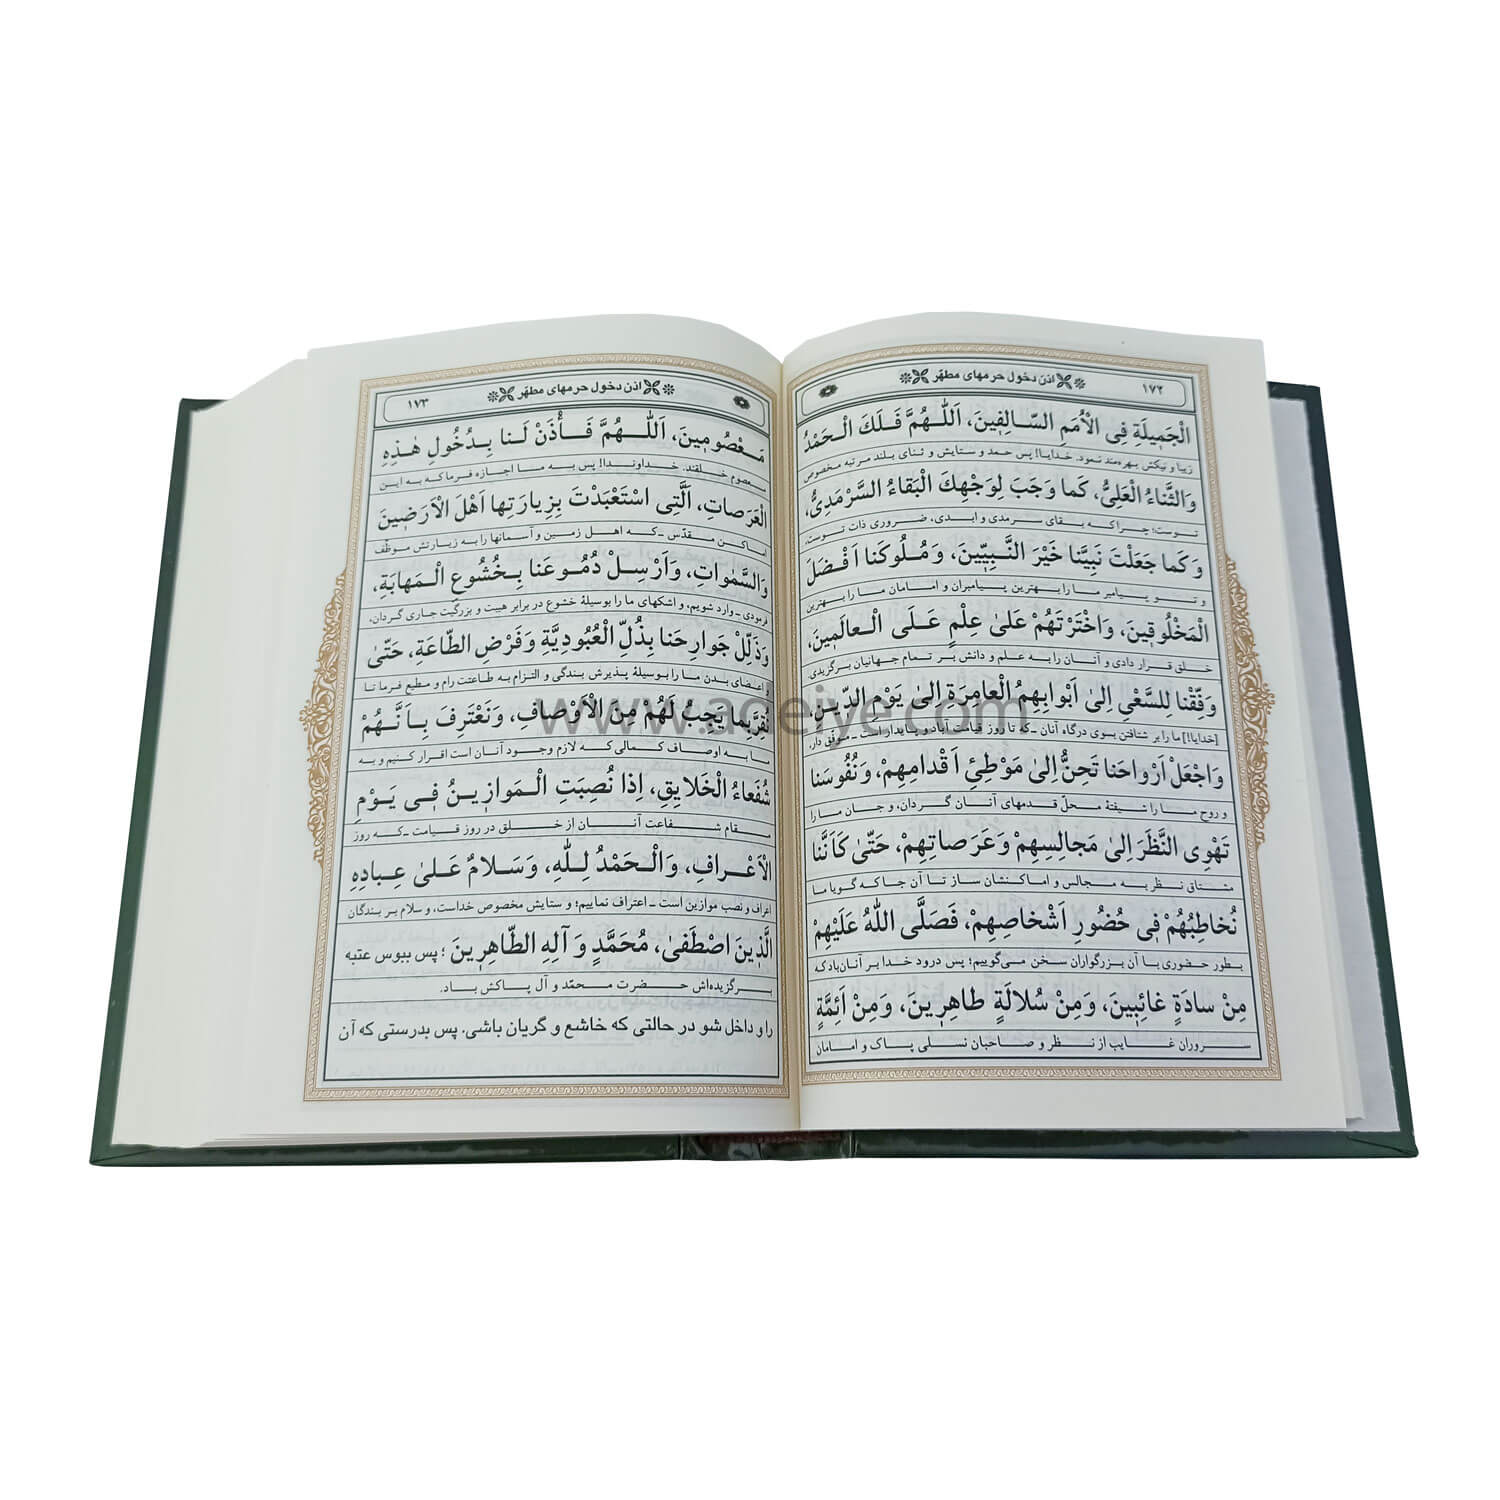 ۱۷۲ اذن دخول حرمهای مطهّر
الْجَمِيلَةِ فِى الْاُمَمِ السّالِفِينَ، اَللّهُمَّ فَلَكَ الْحَمْدُ
زیبا و نیکش بهره‌مند نمود. خدایا! پس حمد و ستایش و ثنای بلند مرتبه مخصوص
وَالثَّناءُ الْعَلِىُّ، كَما وَجَبَ لِوَجْهِكَ الْبَقاءُ السَّرْمَدِىُّ،
توست؛ چراکه بقای سرمدی و ابدی، ضروری ذات توست،
وَكَما جَعَلْتَ نَبِيَّنا خَيْرَ النَّبِيّينَ، وَمُلُوكَنا اَفْضَلَ
و تو پیامبر ما را بهترین پیامبران و امامان ما را بهترین
الْمَخْلُوقينَ، وَاخْتَرْتَهُمْ عَلىٰ عِلْمٍ عَلَى الْعالَمينَ،
خلق قرار دادی و آنان را به علم و دانش بر تمام جهانیان برگزیدی.
وَفِّقْنا لِلسَّعْىِ اِلىٰ اَبْوابِهِمُ الْعامِرَةِ اِلىٰ يَوْمِ الدّينِ،
[خدایا!] ما را بر شتافتن بسوی درگاه آنان ـ که تا روز قیامت آباد و پایدار است ـ موفّق دار،
وَاجْعَلْ اَرْواحَنا تَحِنُّ اِلىٰ مَوْطِئِ اَقْدامِهِمْ، وَنُفُوسَنا
و روح ما را شیفتهٔ محلّ قدمهای آنان گردان، و جان ما را
تَهْوِى النَّظَرَ اِلىٰ مَجالِسِهِمْ وَعَرَصاتِهِمْ، حَتّىٰ كَاَنَّنا
مشتاق نظر به مجالس و اماکنشان ساز تا آن جا که گویا ما
نُخاطِبُهُمْ فى حُضُورِ اَشْخاصِهِمْ، فَصَلَّى اللهُ عَلَيْهِمْ
بطور حضوری با آن بزرگواران سخن می‌گوییم؛ پس درود خدا بر آنان باد که
مِنْ سادَةٍ غائِبينَ، وَمِنْ سُلالَةٍ طاهِرينَ، وَمِنْ اَئِمَّةٍ
سروران غایب از نظر و صاحبان نسلی پاک و امامان
اذن دخول حرمهای مطهّر ۱۷۳
مَعْصُومينَ، اَللّهُمَّ فَأْذَنْ لَنا بِدُخُولِ هٰذِهِ
معصوم خلقند. خداوندا! پس به ما اجازه فرما که به این
الْعَرَصاتِ، اَلَّتِى اسْتَعْبَدْتَ بِزِيارَتِها اَهْلَ الْاَرَضينَ
اماکن مقدّس ـ که اهل زمین و آسمانها را به زیارتش موظّف
وَالسَّمٰواتِ، وَاَرْسِلْ دُمُوعَنا بِخُشُوعِ الْمَهابَةِ،
فرمودی ـ وارد شویم، و اشکهای ما را بوسیلهٔ خشوع در برابر هیبت و بزرگیت جاری گردان،
وَذَلِّلْ جَوارِحَنا بِذُلِّ الْعُبُودِيَّةِ وَفَرْضِ الطّاعَةِ، حَتّىٰ
و اعضای بدن ما را بوسیلهٔ پذیرش بندگی و التزام به طاعتت رام و مطیع فرما تا
نُقِرَّ بِما يَجِبُ لَهُمْ مِنَ الْاَوْصافِ، وَنَعْتَرِفَ بِاَنَّهُمْ
ما به اوصاف کمالی که لازم وجود آنان است اقرار کنیم و به
شُفَعاءُ الْخَلايِقِ، اِذا نُصِبَتِ الْمَوازينُ فى يَوْمِ
مقام شفاعت آنان از خلق در روز قیامت ـ که روز
الْاَعْرافِ، وَالْحَمْدُ لِلّهِ، وَسَلامٌ عَلىٰ عِبادِهِ
اعراف و نصب موازین است ـ اعتراف نماییم؛ و ستایش مخصوص خداست، و سلام بر بندگان
الَّذينَ اصْطَفىٰ، مُحَمَّدٍ وَ آلِهِ الطّاهِرينَ؛ پس ببوس عتبه
برگزیده‌اش حضرت محمّد و آل پاکش باد.
را و داخل شو در حالتی که خاشع و گریان باشی. پس بدرستی که آن
www.adeiye.com